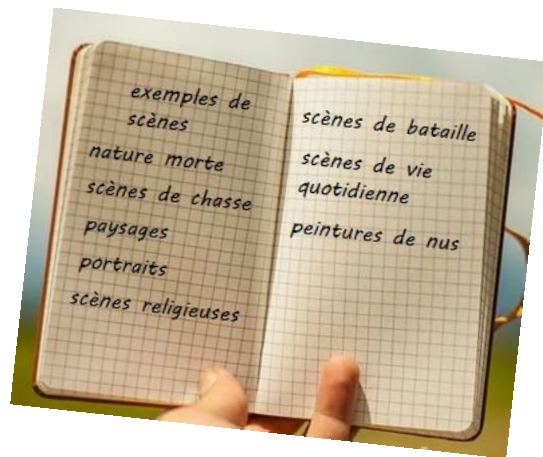 exemples de
scènes
nature morte
scènes de chasse
paysages
portraits
scènes religieuses
scènes de bataille
scènes de vie
quotidienne
peintures de nus